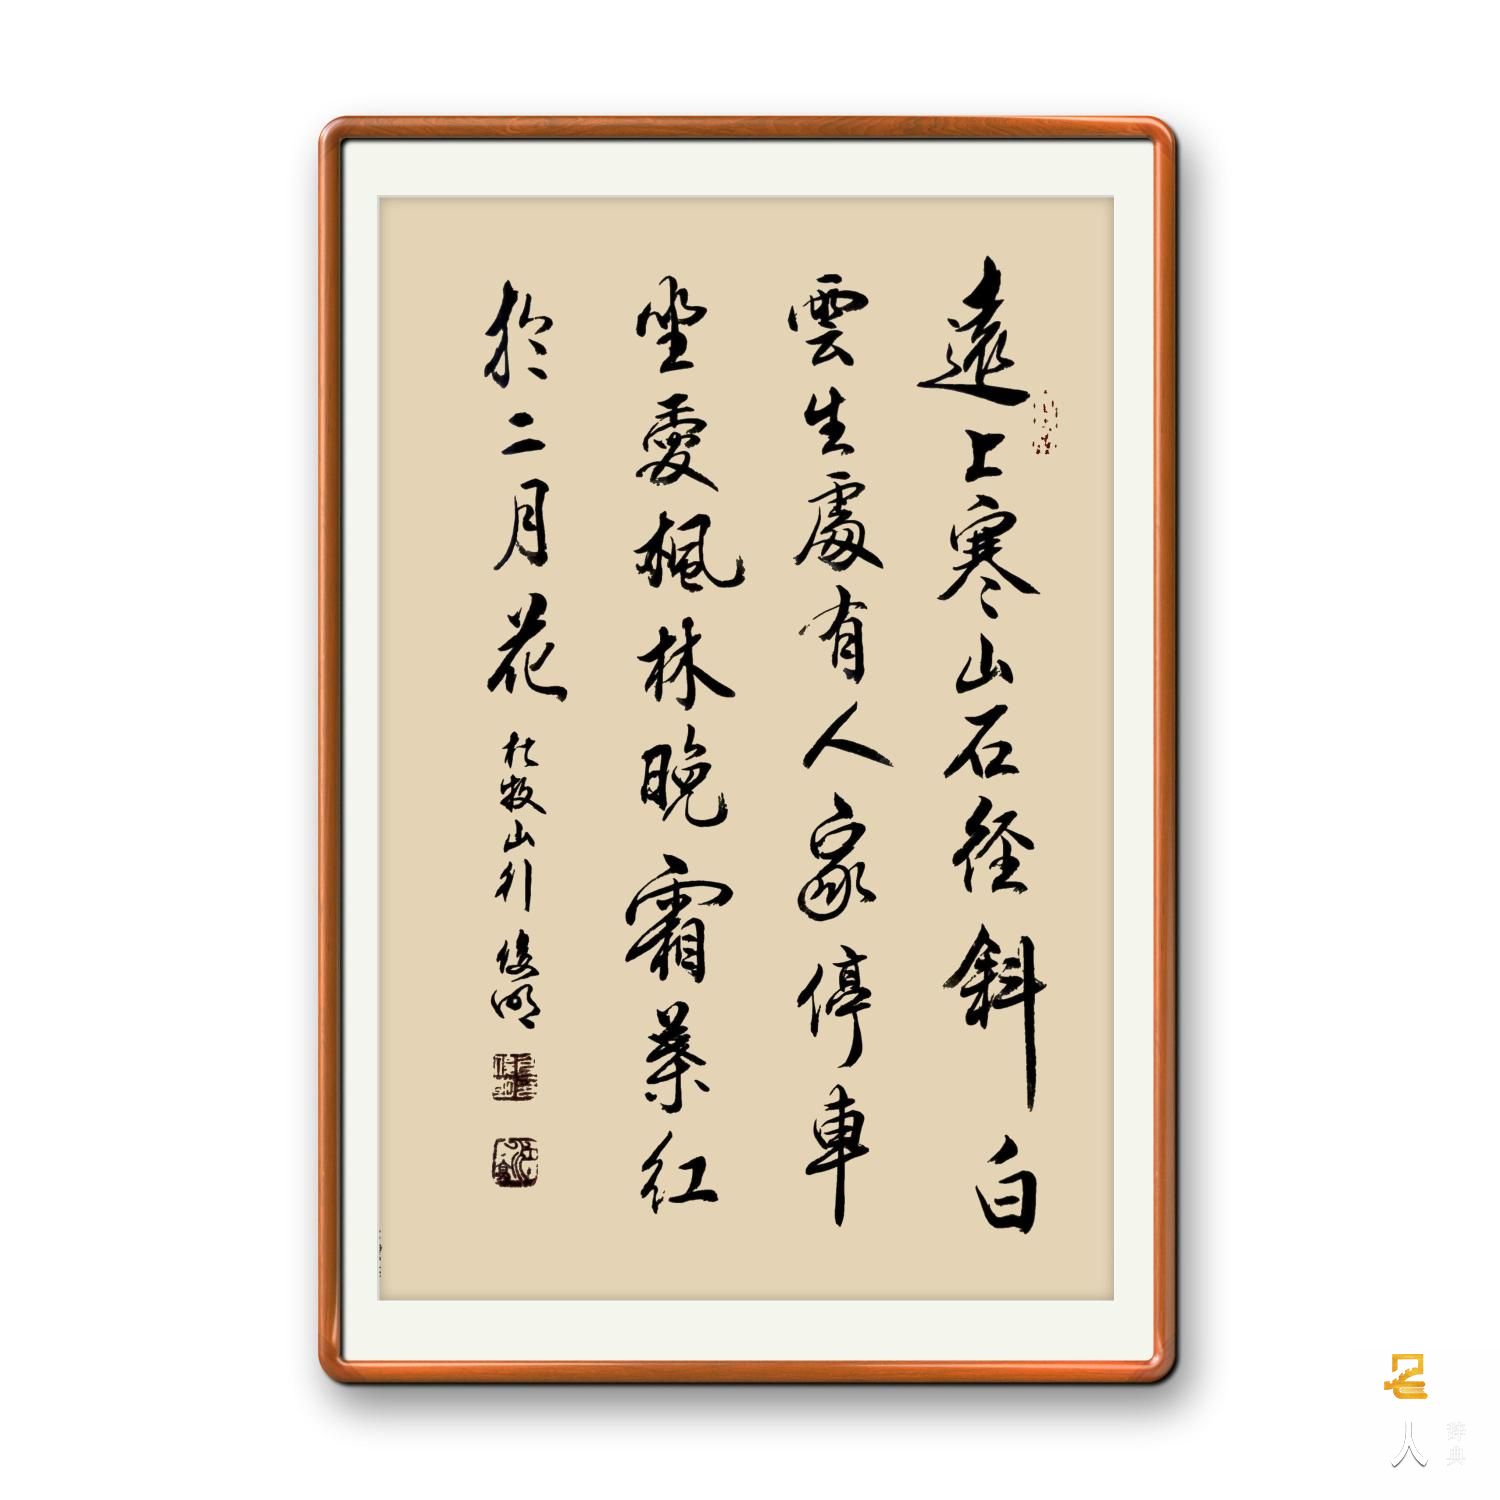 遠上寒山石徑斜白
雲生處有人家停車
坐愛楓林晚霜葉紅
於二月花 杜牧山行 俊明
人
辞典